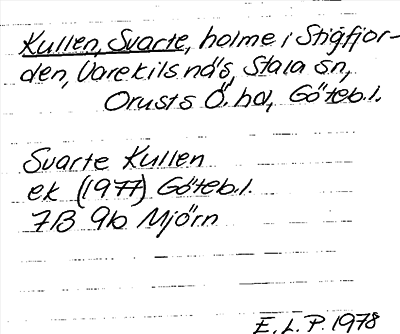 Kullen, Svarte, holme i Stigfjor-
den, Varekils näs, Stala sn,
Orusts Ö. hd, Göteb.l.
Svarte Kullen
ek (1977) Göteb.l.
7B 9b Mjörn
E.L.P. 1978